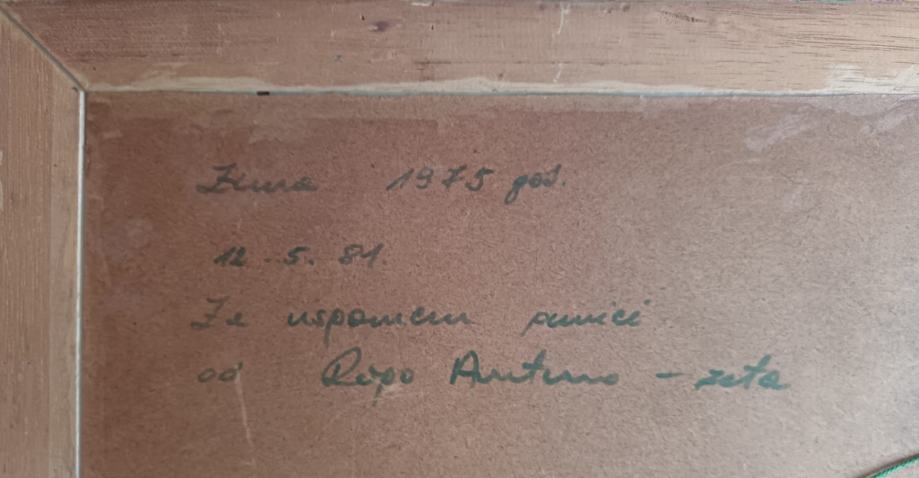 Zima 1975 god.
12.5.81.
Za uspomenu punici
od Ripo Antuno - zeta